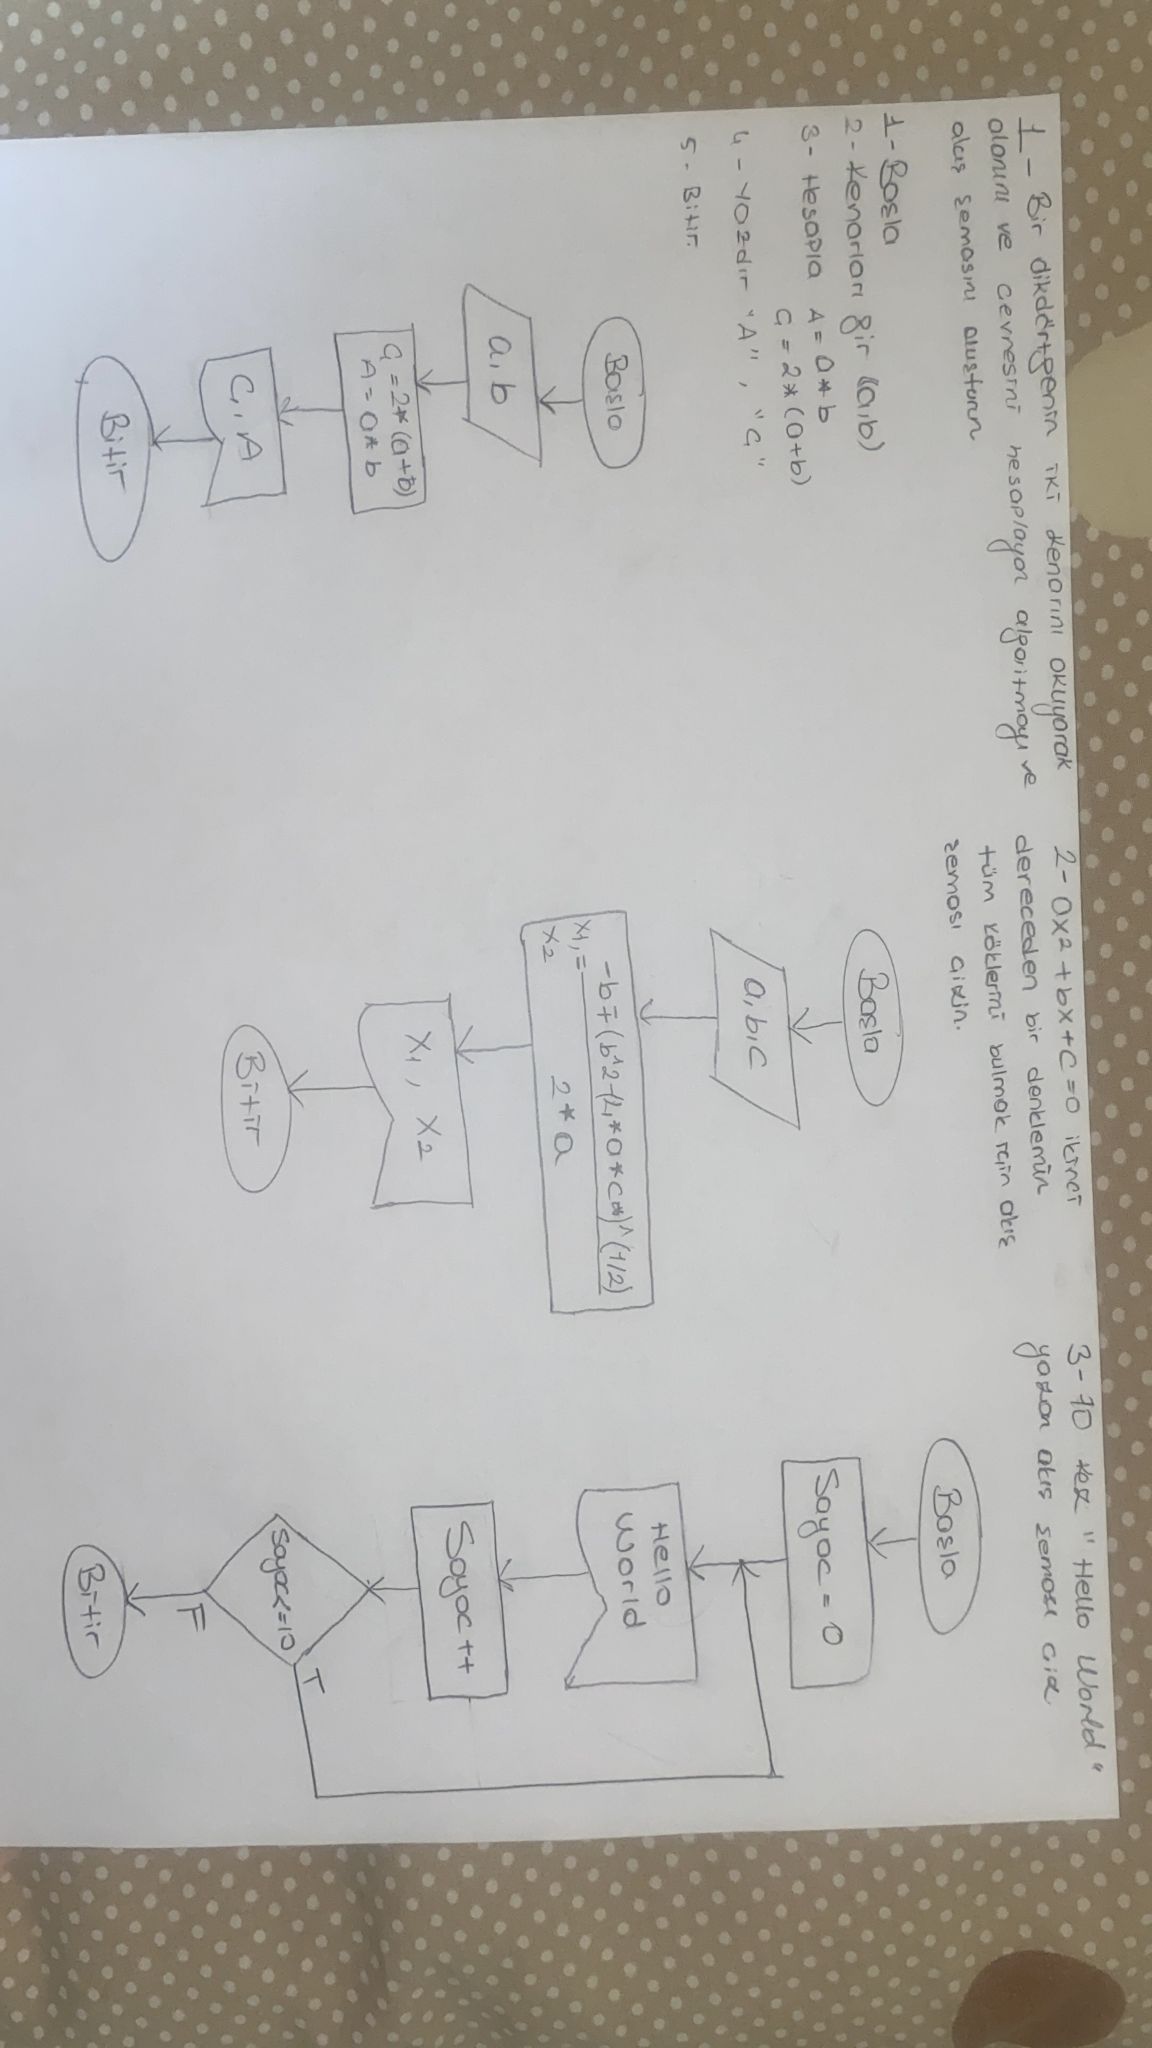 1- Bir dikdörtgenin iki kenarını okuyarak
alanını ve çevresini hesaplayan algoritmayı ve
akış şemasını oluşturun
1- Başla
2- Kenarları gir (a,b)
3- Hesapla A = a*b
Ç = 2*(a+b)
4- Yazdır "A", "Ç"
5- Bitir.
Başla
a,b
Ç=2*(a+b)
A=a*b
Ç, A
Bitir
2- ax2+bx+c=0 ikinci
dereceden bir denklemin
tüm köklerini bulmak için akış
şeması çizin.
Başla
a,b,c
-b∓(b^2-(4*a*c))^(1/2)
x1,=
x2
2*a
x1, x2
Bitir
3- 10 kez "Hello World"
yazan akış şeması çiz
Başla
Sayac=0
Hello
World
Sayac++
Sayac<=10
T
F
Bitir